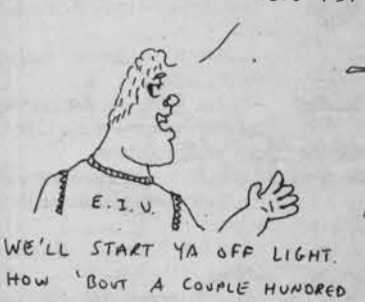 E.I.U.
WE'LL START YA OFF LIGHT.
HOW 'BOUT A COUPLE HUNDRED